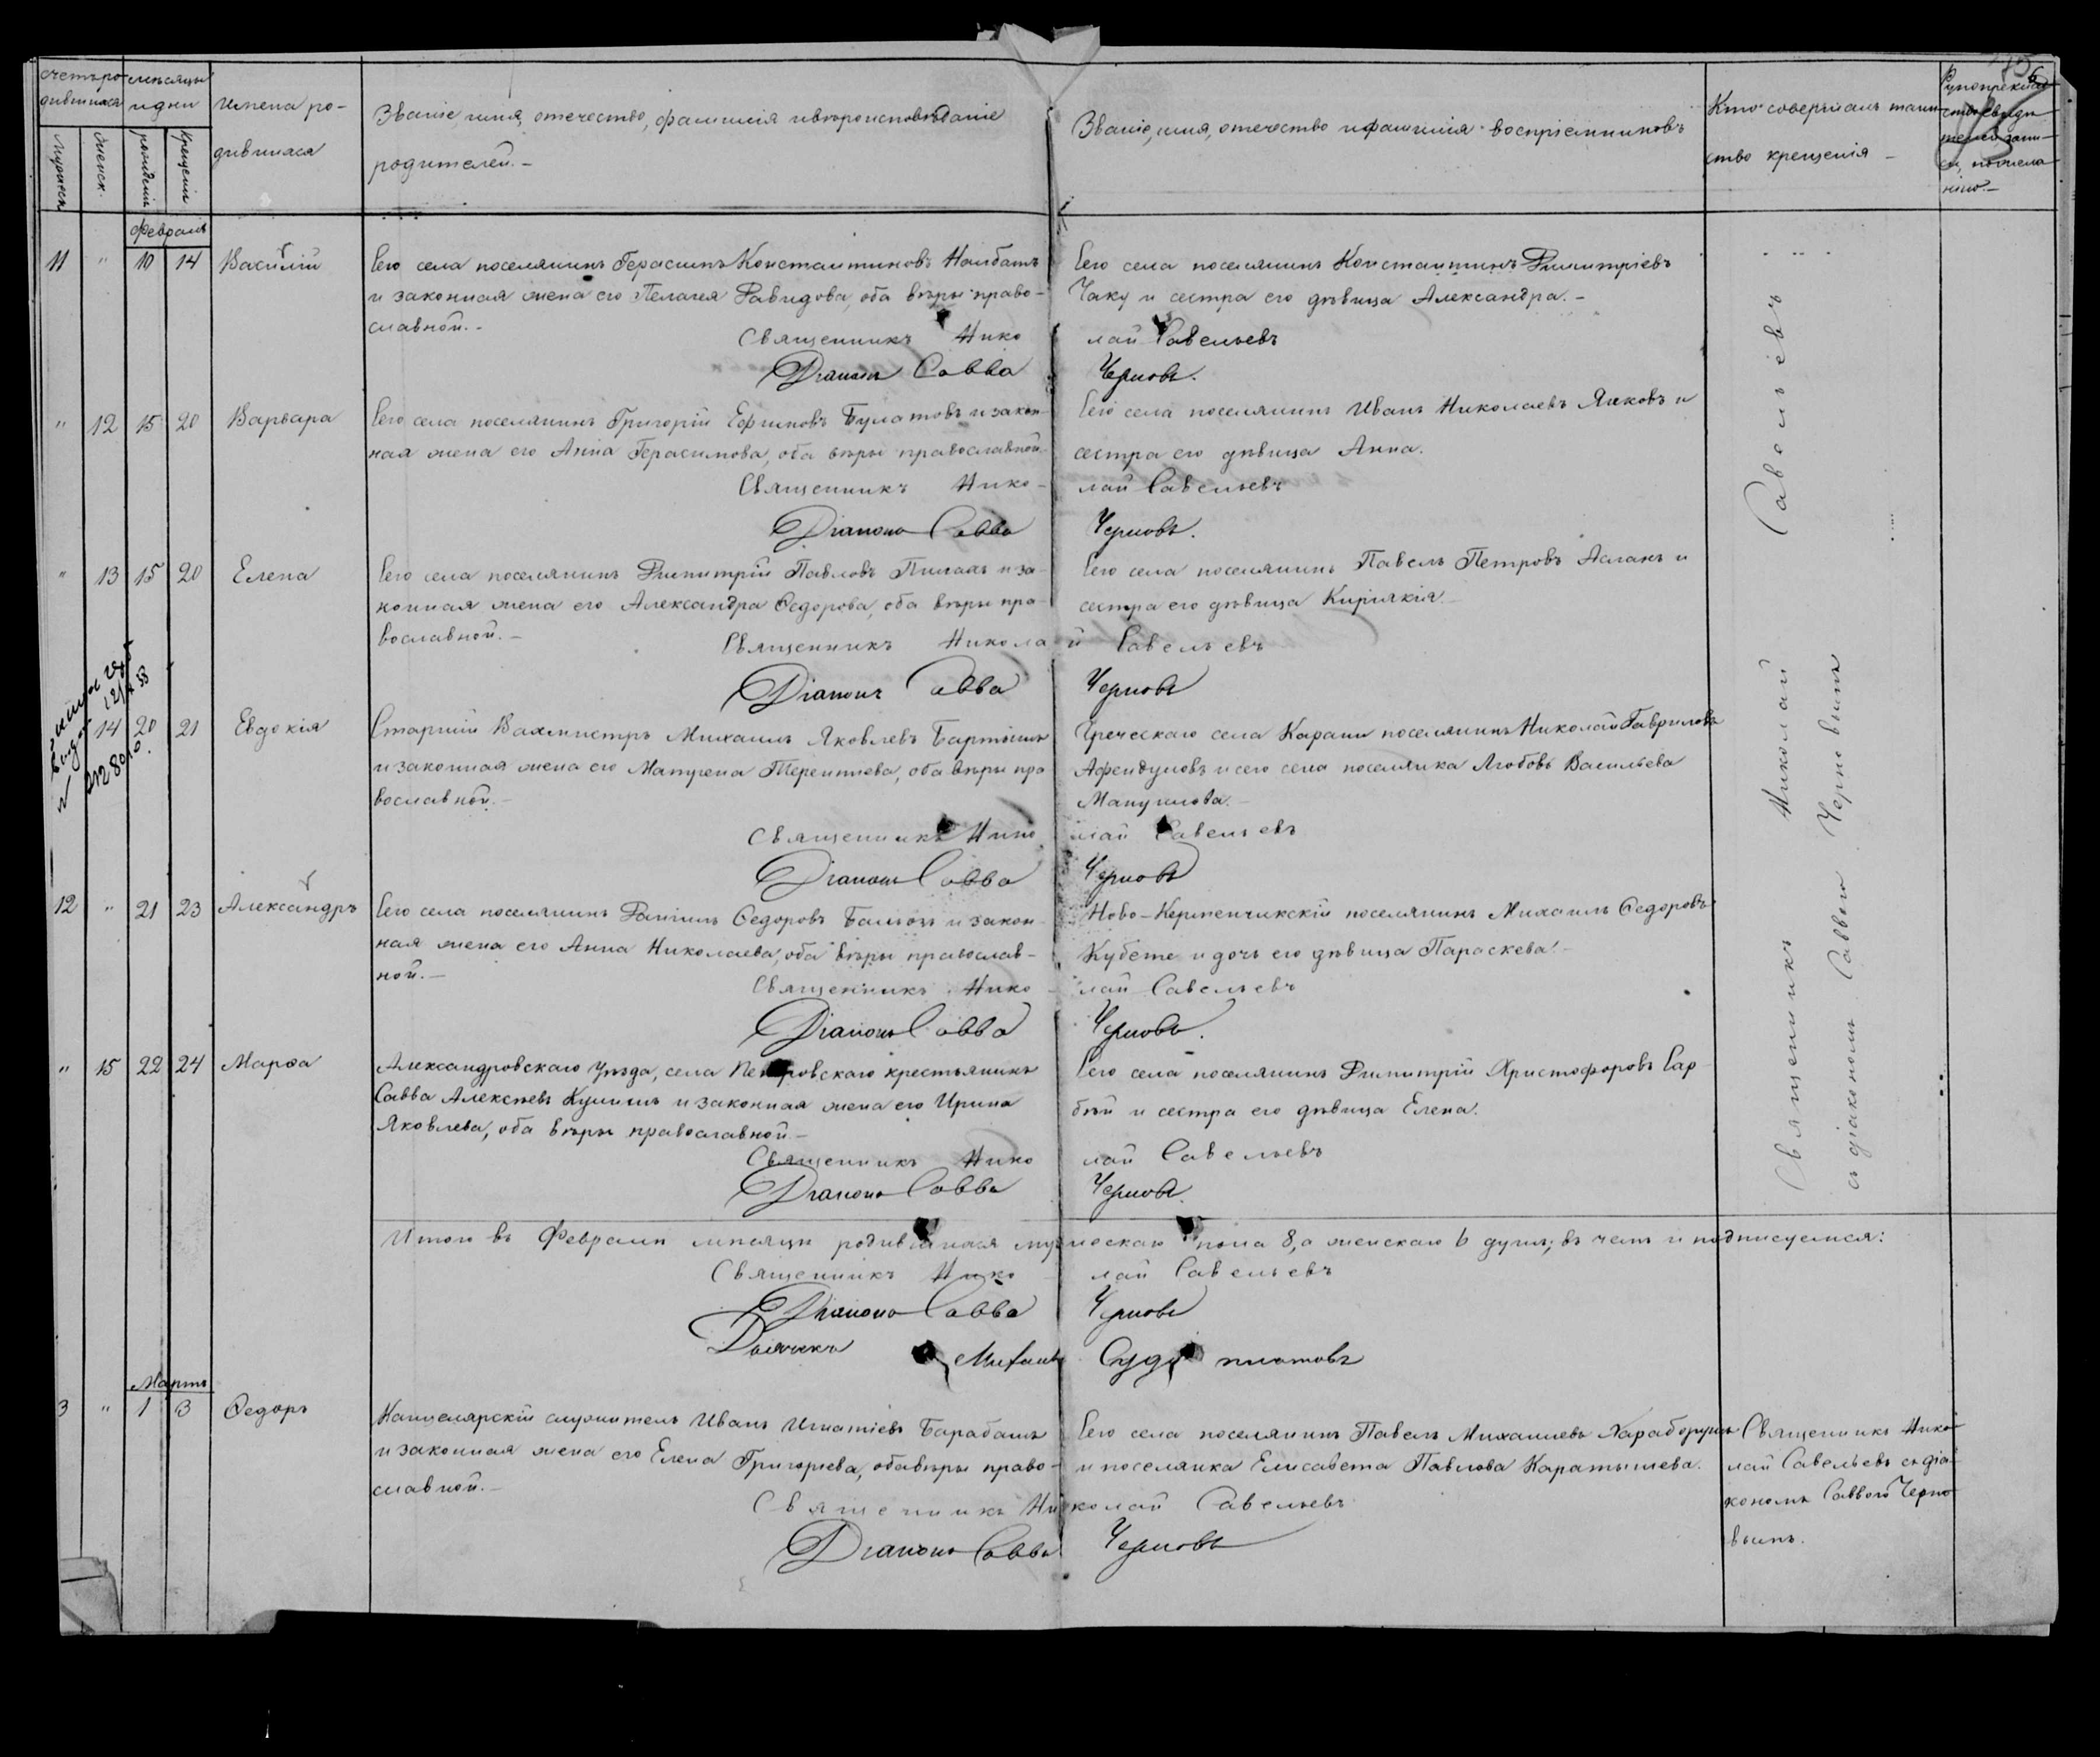 Счетъ ро-
дившихся
Мужеск.
Женск.
мѣсяцы
и дни
рожденія
Крещенія
Имена ро-
дившихся
Званіе, имя, отечество, фамилія и вѣроисповѣданіе
родителей.-
Званіе, имя, отечество и фамилія воспріемниковъ
Кто совершалъ таин-
ство крещенія -
Рукоприклад-
ство свидѣ-
телей запи-
си, по жела-
нію.-
Февраль
11 " 10 14 Василій
Сего села поселянинъ Герасимъ Константиновъ Наибатъ
и законная жена его Пелагея Давидова, оба вѣры право-
славной.-
Сего села поселянинъ Константинъ Димитріевъ
Чаку и сестра его дѣвица Александра.-
Священникъ Николай Савельевъ
Діаконъ Савва Черновъ.
" 12 15 20 Варвара
Сего села поселянинъ Григорій Ефимовъ Булатовъ и закон-
ная жена его Анна Герасимова, оба вѣры православной.
Сего села поселянинъ Иванъ Николаевъ Яиковъ и
сестра его дѣвица Анна.
Священникъ Нико- лай Савельевъ
Діаконъ Савва Черновъ.
" 13 15 20 Елена
Сего села поселянинъ Димитрій Павловъ и за-
конная жена его Александра Ѳедорова, оба вѣры пра-
вославной.-
Сего села поселянинъ Павелъ Петровъ Асланъ и
сестра его дѣвица Киріякія.-
Священникъ Николай Савельевъ
Діаконъ Савва Черновъ
14 20 21 Евдокія
Старшій Вахмистръ Михаилъ Яковлевъ
и законная жена его Матрена Терентіева, оба вѣры пра
вославной.-
Греческаго села Карани поселянинъ Николай Гавриловъ
Афендуловъ и сего села поселянка Любовь Васильева
Мануилова.-
Священникъ Нико лай Савельевъ
Діаконъ Савва Черновъ
12 " 21 23 Александръ
Сего села поселянинъ Даніилъ Ѳедоровъ и закон-
ная жена его Анна Николаева, оба вѣры православ-
ной.-
Ново-Керменчикскій поселянинъ Михаилъ Ѳедоровъ
Кубете и дочь его дѣвица Параскева.-
Священникъ Нико - лай Савельевъ
Діаконъ Савва Черновъ.
" 15 22 24 Марѳа
Александровскаго уѣзда, села Петровскаго крестьянинъ
Савва Алексѣевъ Кулишъ и законная жена его Ирина
Яковлева, оба вѣры православной -
Сего села поселянинъ Димитрій Христофоровъ Сар-
бѣй и сестра его дѣвица Елена.
Священникъ Нико лай Савельевъ
Діаконъ Савва Черновъ.
Священникъ Николай Савельевъ
съ діакономъ Саввою Черновымъ
Итого въ Февралѣ мѣсяцѣ родившихся мужескаго пола 8, а женскаго 6 душъ; въ чемъ и подписуемся:
Священникъ Нико лай Савельевъ
Діаконъ Савва Черновъ
Дьячекъ Михаилъ
Мартъ
3 " 1 3 Ѳедоръ
Канцелярскій служитель Иванъ Игнатіевъ Барабашъ
и законная жена его Елена Григорьева, оба вѣры право-
славной.-
Сего села поселянинъ Павелъ Михаиловъ
и поселянка Елисавета Павлова Каратышева.
Священникъ Нико-
лай Савельевъ съ діа-
кономъ Саввою Черно-
вымъ.
Священникъ Николай Савельевъ
Діаконъ Савва Черновъ